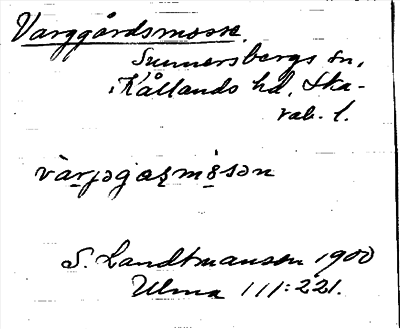 Varggårdsmosse.
Sunnersbergs sn,
Kållands hd, Ska-
rab. l.
S. Landtmanson 1900
Ulma 111:221.